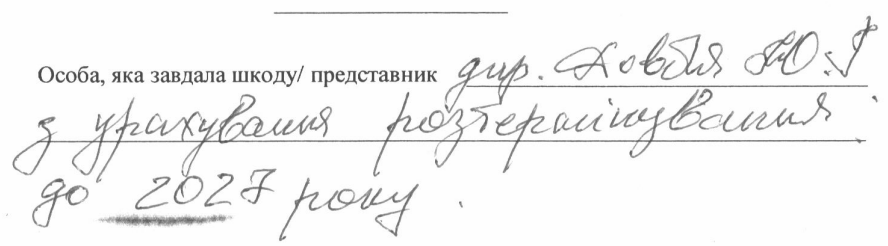 Особа, яка завдала шкоду/ представник дир. Ковбня Ю.Г
з урахування розтермінування.
до 2027 року.